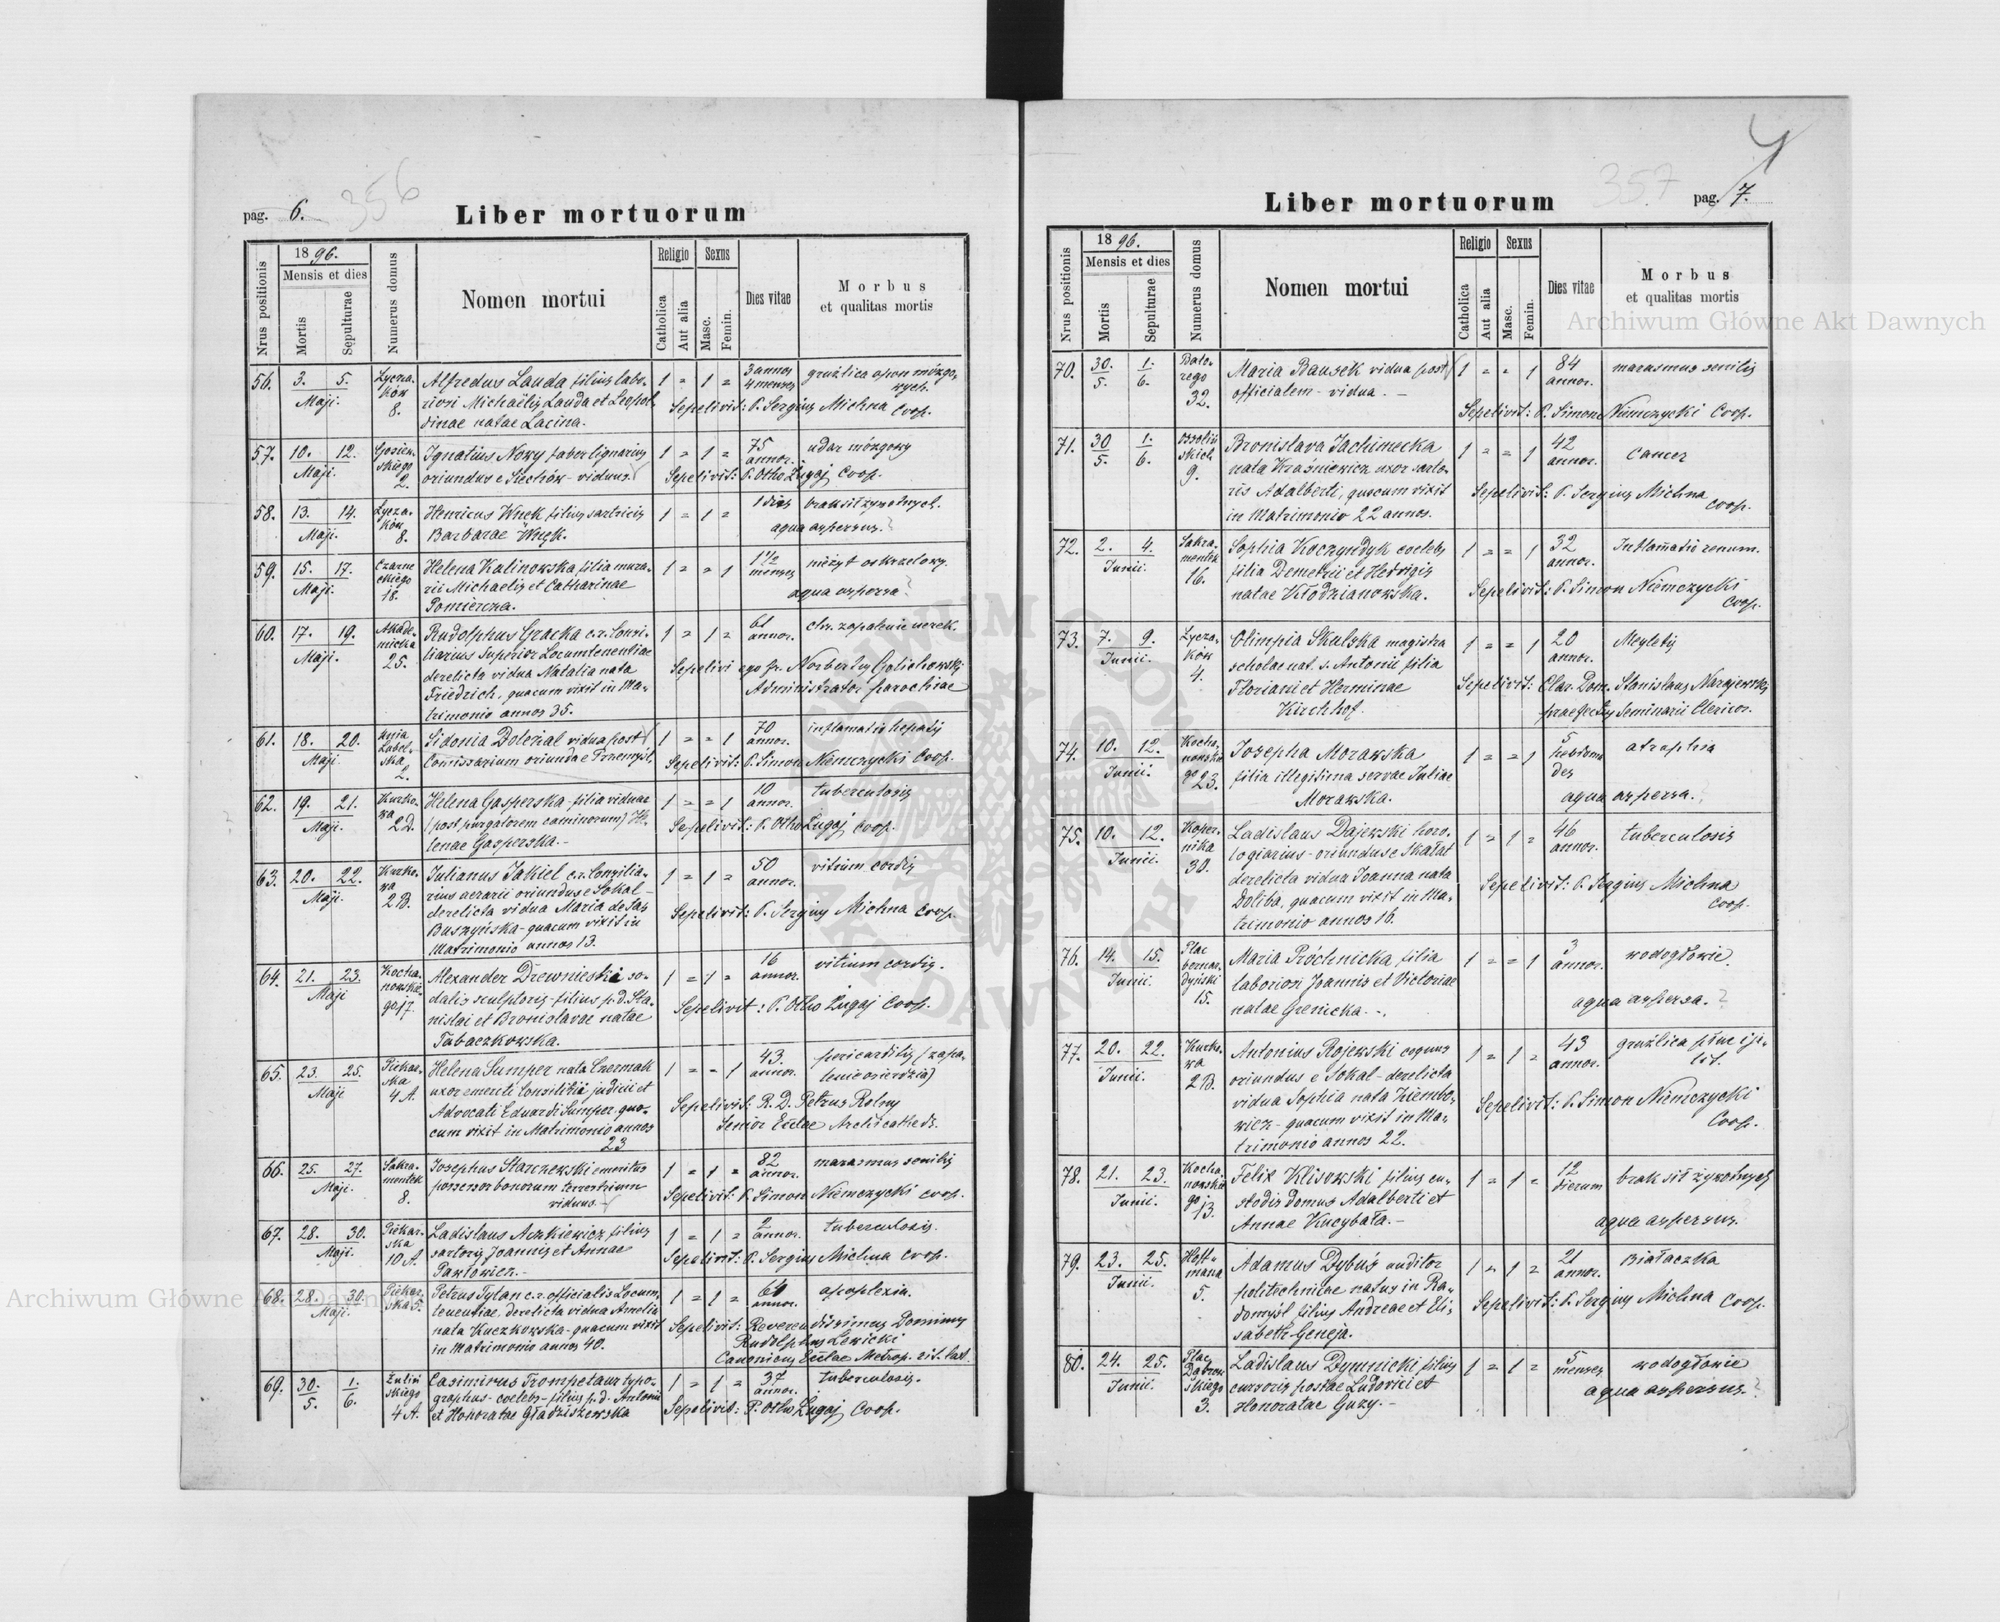 pag. 6. 356
Liber mortuorum
Nrus positionis
1896.
Mensis et dies
Mortis
Sepulturae
Numerus domus
Nomen mortui
Religio
Catholica
Aut alia
Sexus
Masc.
Femin.
Dies vitae
Morbus
et qualitas mortis
56. 3. 5. Maji. Łycza-
ków
8.
Alfredus Lauda filius labo-
riosi Michaëlis Lauda et Leopol-
dinae natae Lacina.
1 = 1 = 3 annor 4 menses gruźlica opon mózgo-
wych.
Sepelivit: P. Sergius Michna Coop.
57. 10. 12. Maji. 2.
Ignatius Nowy faber lignarius
oriundus e Siechów - viduus.
1 = 1 = 75 annor. udar mózgowy
Sepelivit: P. Otho Zugaj Coop.
58. 13. 14. Maji. Łycza-
ków
8.
Henricus Wnęk filius sartricis
Barbarae Wnęk.
1 = 1 = 1 dies brak sił żywotnych.
aqua aspersus.
59. 15. 17. Maji. Czarne
ckiego
18.
Helena Kalinowska filia mura-
rii Michaelis et Catharinae
Pomiercza.
1 = = 1 1 1/2 menses nieżyt oskrzelowy.
aqua aspersa
60. 17. 19. Maji. Akade-
micka
25.
Rudolphus Gracka c.r. Consi-
liarius Superior Locumtenentiae
derelicta vidua Natalia nata
Friedrich, quacum vixit in Ma-
trimonio annos 35.
1 = 1 = 61 annor. chr. zapalenie nerek.
Sepelivi ego fr. Norbertus Golichowski
Administrator parochiae
61. 18. 20. Maji. Unia
Lubel-
ska
2.
Sidonia Doleżal vidua post
Comissarium oriunda e Przemyśl,
1 = = 1 70 annor. inflamatio hepatis
Sepelivit: P. Simon Niemczycki Coop.
62. 19. 21. Maji. Kurko-
wa
2 D.
Helena Gasperska - filia viduae
(post purgatorem caminorum) He-
lenae Gasperska.-
1 = = 1 10 annor. tuberculosis
Sepelivit: P. Otho Zugaj Coop.
63. 20. 22. Maji. Kurko-
wa
2 B.
Julianus Jakiel c.r. Consilia-
rius aerarii oriundus e Sokal-
derelicta vidua Maria de Sas
Buszyńska - quacum vixit in
Matrimonio annos 13.
1 = 1 = 50 annor. vitium cordis
Sepelivit: P. Sergius Michna Coop.
64. 21. 23. Maji Kocha-
nowskie-
go 17.
Alexander Drewnieski so-
dalis sculptoris - filius p.d. Sta-
nislai et Bronislavae natae
Tabaczkowska.
1 = 1 = 16 annor. vitium cordis.
Sepelivit: P. Otho Zugaj Coop.
65. 23. 25. Maji Piekar-
ska
4 A.
Helena Sumper nata Czermak
uxor emeriti Consilitii judicii et
Advocati Eduardi Sumper quo-
cum vixit in Matrimonio annos
23
1 = = 1 43. annor. pericarditis (zapa-
lenie osierdzia)
Sepelivit: R. D. Petrus Rolny
Senior Ecclae Archicathedr.
66. 25. 27. Maji. Sakra-
mentek
8.
Josephus Starczewski emeritus
possessor bonorum terrestrium
viduus.-
1 = 1 = 82 annor. marasmus senilis
Sepelivit: P. Simon Niemczycki Coop.
67. 28. 30. Maji. Piekar-
ska
10 A.
Ladislaus Aszkiewicz filius
sartoris Joannis et Annae
Pawłowicz.-
1 = 1 = 2 annor. tuberculosis.
Sepelivit: P. Sergius Michna Coop.
68. 28. 30. Maji. Piekar-
ska 5.
Petrus Tylan c.r. officialis Locum-
tenentiae. derelicta vidua Amelia
nata Kuczkowska - quacum vixit
in Matrimonio annos 40.
1 = 1 = annor. apoplexia.
Sepelivit: Reverendissimus Dominus
Rudolphus Lewicki
Canonicus Ecclae Metrop. rit. lat.
69. 30. 5. 1. 6. Zuliń
skiego
4 A.
Casimirus Trompetaur typo-
graphus - coelebs - filius p.d. Antonii
et Honoratae Gładziszewska
1 = 1 = 37 annor. tuberculosis.
Sepelivit: P. Otho Zugaj Coop.
357 pag. 7.
Liber mortuorum
Nrus positionis
1896.
Mensis et dies
Mortis
Sepulturae
Numerus domus
Nomen mortui
Religio
Catholica
Aut alia
Sexus
Masc.
Femin.
Dies vitae
Morbus
et qualitas mortis
70. 30. 5. 1. 6. Bato-
rego
32.
Maria Bausek vidua post
officialem - vidua.-
1 = = 1 84 annor. marasmus senilis
Sepelivit: P. Simone Niemczycki Coop.
71. 30 5. 1. 6. Ossoliń
skich
9.
Bronislava Jachimecka
nata Kraśniewicz uxor sarto-
ris Adalberti, quocum vixit
in Matrimonio 22 annos.
1 = = 1 42 annor. Cancer
Sepelivit: P. Sergius Michna
Coop.
72. 2. 4. Junii. Sakra-
mentek
16.
Sophia Koczyndyk coelebs
filia Demetrii et Hedvigis
natae Kłodzianowska.
1 = = 1 32 annor. Inflamatii renum.
Sepelivit: P. Simon Niemczycki
Coop.
73. 7. 9. Junii. Łycza-
ków
4.
Olimpia Skulska magistra
scholae nat. s. Antonii filia
Floriani et Herminae
Kirchhof.
1 = = 1 20 annor.
Sepelivit: Clar. Dom. Stanislaus Narajewski
praefectus Seminarii Clericor.
74. 10. 12. Junii. Kocha-
nowskie
go 23.
Josepha Morawska
filia illegitima servae Juliae
Morawska.
1 = = 1 5 hebdoma
des atrophia
aqua aspersa.
75. 10. 12. Junii. Koper-
nika
30.
Ladislaus Dajewski horo-
logiarius - oriundus e Skałat
derelicta vidua Joanna nata
Doliba, quacum vixit in Ma-
trimonio annos 16.
1 = 1 = 46 annor. tuberculosis
Sepelivit: P. Sergius Michna
Coop.
76. 14. 15. Junii. Plac
bernar-
dyński
15.
Maria Próchnicka filia
laboriosi Joannis et Victoriae
natae Grenicka.-
1 = = 1 3 annor. wodogłowie
aqua aspersa.
77. 20. 22. Junii. Kurko-
wa
2 B.
Antonius Rojewski coquus
oriundus e Sokal - derelicta
vidua Sophia nata Ziembo-
wicz - quacum vixit in Ma-
trimonio annos 22.
1 = 1 = 43 annor. gruźlica płuc i je-
lit.
Sepelivit: P. Simon Niemczycki
Coop.
78. 21. 23. Junii. Kocha-
nowskie
go 13.
Felix Klisowski filius cu-
stodis domus Adalberti et
Annae Kucybała.-
1 = 1 = 12 dierum brak sił żywotnych
aqua aspersus.
79. 23. 25. Junii. Hoff-
mana
5.
Adamus Dybuś auditor
politechnicae natus in Ra-
domyśl filius Andreae et Eli-
sabeth Geneja.
1 = 1 = 21 annor. Białaczka
Sepelivit: P. Sergius Michna Coop.
80. 24. 25. Junii. Plac
Dąbrow-
skiego
3.
Ladislaus Dymnicki filius
cursoris postae Ludovici et
Honoratae Guzy.-
1 = 1 = 5 menses wodogłowie
aqua aspersus.
Archiwum Główne Akt Dawnych
Archiwum Główne Akt Dawnych
ARCHIWUM GŁÓWNE AKT DAWNYCH